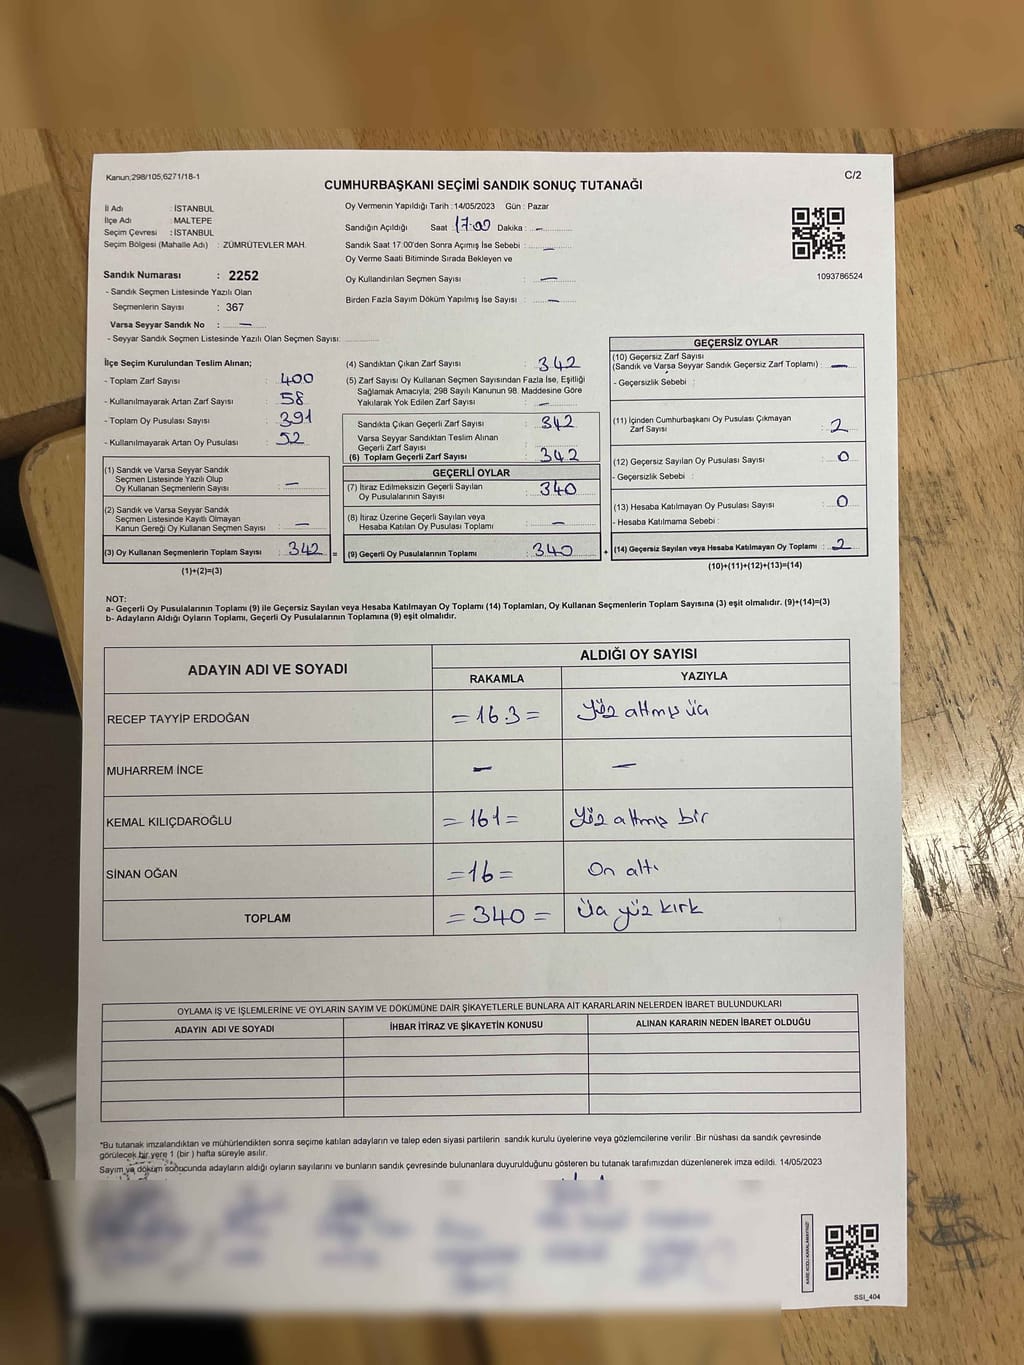 Kanun;298/105,6271/18-1
C/2
CUMHURBAŞKANI SEÇİMİ SANDIK SONUÇ TUTANAĞI
İl Adı : İSTANBUL
İlçe Adı : MALTEPE
Seçim Çevresi : İSTANBUL
Seçim Bölgesi (Mahalle Adı) : ZÜMRÜTEVLER MAH.
Sandık Numarası : 2252
- Sandık Seçmen Listesinde Yazılı Olan
Seçmenlerin Sayısı : 367
Varsa Seyyar Sandık No : —
- Seyyar Sandık Seçmen Listesinde Yazılı Olan Seçmen Sayısı:
Oy Vermenin Yapıldığı Tarih : 14/05/2023 Gün : Pazar
Sandığın Açıldığı Saat 17:00 Dakika : —
Sandık Saat 17:00'den Sonra Açımış İse Sebebi : —
Oy Verme Saati Bitiminde Sırada Bekleyen ve
Oy Kullandırılan Seçmen Sayısı : —
Birden Fazla Sayım Döküm Yapılmış İse Sayısı : —
1093786524
İlçe Seçim Kurulundan Teslim Alınan;
- Toplam Zarf Sayısı : 400
- Kullanılmayarak Artan Zarf Sayısı : 58
- Toplam Oy Pusulası Sayısı : 391
- Kullanılmayarak Artan Oy Pusulası : 52
(1) Sandık ve Varsa Seyyar Sandık
Seçmen Listesinde Yazılı Olup
Oy Kullanan Seçmenlerin Sayısı : —
(2) Sandık ve Varsa Seyyar Sandık
Seçmen Listesinde Kayıtlı Olmayan
Kanun Gereği Oy Kullanan Seçmen Sayısı : —
(3) Oy Kullanan Seçmenlerin Toplam Sayısı : 342 =
(1)+(2)=(3)
(4) Sandıktan Çıkan Zarf Sayısı : 342
(5) Zarf Sayısı Oy Kullanan Seçmen Sayısından Fazla İse, Eşitliği
Sağlamak Amacıyla; 298 Sayılı Kanunun 98. Maddesine Göre
Yakılarak Yok Edilen Zarf Sayısı : —
Sandıkta Çıkan Geçerli Zarf Sayısı : 342
Varsa Seyyar Sandıktan Teslim Alınan
Geçerli Zarf Sayısı :
(6) Toplam Geçerli Zarf Sayısı : 342
GEÇERLİ OYLAR
(7) İtiraz Edilmeksizin Geçerli Sayılan
Oy Pusulalarının Sayısı : 340
(8) İtiraz Üzerine Geçerli Sayılan veya
Hesaba Katılan Oy Pusulası Toplamı : —
(9) Geçerli Oy Pusulalarının Toplamı : 340 +
GEÇERSİZ OYLAR
(10) Geçersiz Zarf Sayısı
(Sandık ve Varsa Seyyar Sandık Geçersiz Zarf Toplamı) : —
- Geçersizlik Sebebi :
(11) İçinden Cumhurbaşkanı Oy Pusulası Çıkmayan
Zarf Sayısı : 2
(12) Geçersiz Sayılan Oy Pusulası Sayısı : 0
- Geçersizlik Sebebi :
(13) Hesaba Katılmayan Oy Pusulası Sayısı : 0
- Hesaba Katılmama Sebebi :
(14) Geçersiz Sayılan veya Hesaba Katılmayan Oy Toplamı : 2
(10)+(11)+(12)+(13)=(14)
NOT:
a- Geçerli Oy Pusulalarının Toplamı (9) ile Geçersiz Sayılan veya Hesaba Katılmayan Oy Toplamı (14) Toplamları, Oy Kullanan Seçmenlerin Toplam Sayısına (3) eşit olmalıdır. (9)+(14)=(3)
b- Adayların Aldığı Oyların Toplamı, Geçerli Oy Pusulalarının Toplamına (9) eşit olmalıdır.
ADAYIN ADI VE SOYADI
ALDIĞI OY SAYISI
RAKAMLA YAZIYLA
RECEP TAYYİP ERDOĞAN =163= Yüz altmış üç
MUHARREM İNCE — —
KEMAL KILIÇDAROĞLU =161= Yüz altmış bir
SİNAN OĞAN =16= On altı
TOPLAM =340= Üç yüz kırk
OYLAMA İŞ VE İŞLEMLERİNE VE OYLARIN SAYIM VE DÖKÜMÜNE DAİR ŞİKAYETLERLE BUNLARA AİT KARARLARIN NELERDEN İBARET BULUNDUKLARI
ADAYIN ADI VE SOYADI İHBAR İTİRAZ VE ŞİKAYETİN KONUSU ALINAN KARARIN NEDEN İBARET OLDUĞU
*Bu tutanak imzalandıktan ve mühürlendikten sonra seçime katılan adayların ve talep eden siyasi partilerin sandık kurulu üyelerine veya gözlemcilerine verilir .Bir nüshası da sandık çevresinde
görülecek bir yere 1 (bir ) hafta süreyle asılır.
Sayım ve döküm sonucunda adayların aldığı oyların sayılarını ve bunların sandık çevresinde bulunanlara duyurulduğunu gösteren bu tutanak tarafımızdan düzenlenerek imza edildi. 14/05/2023
KARE KODU KARALAMAYINIZ!
SSI_404